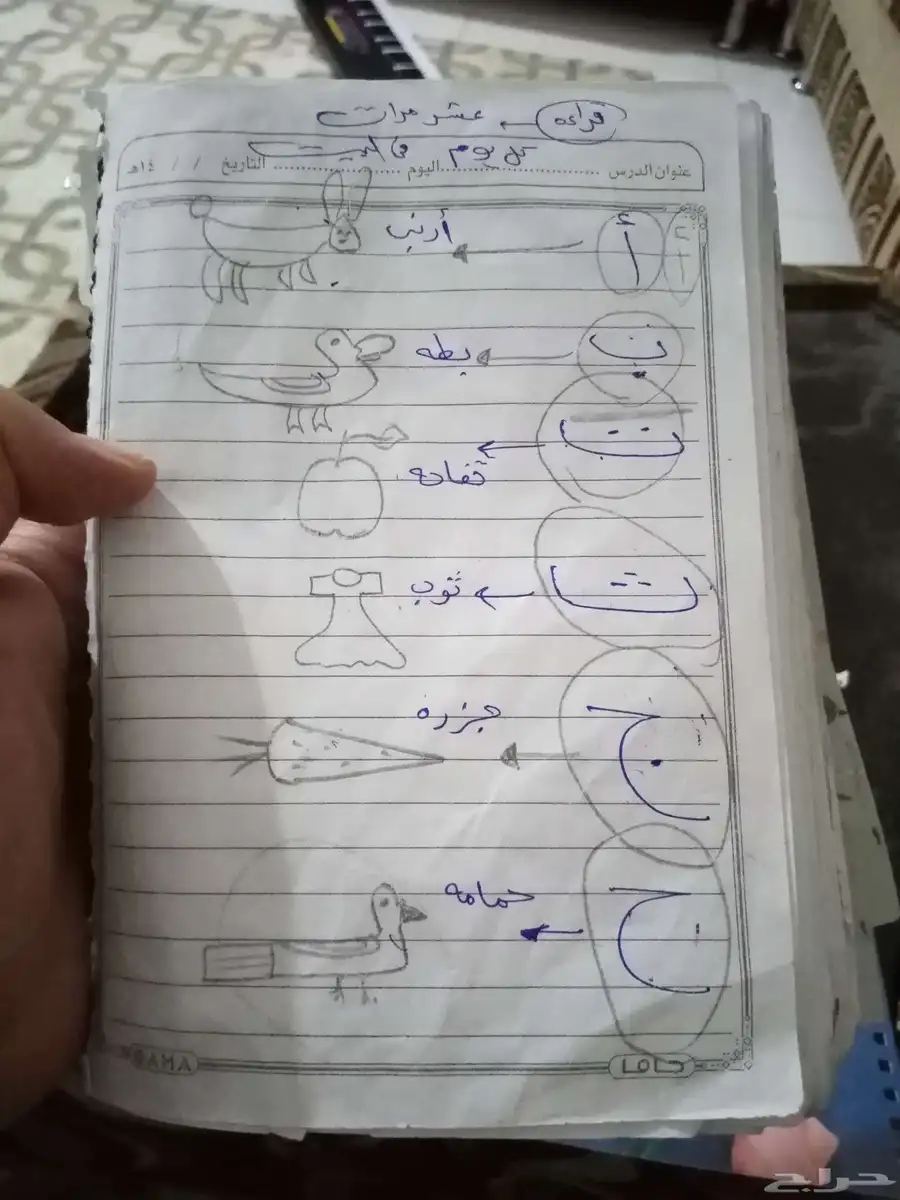 قراءه ← عشر مرات
كل يوم فالبيت
عنوان الدرس ........ اليوم ........ التاريخ / / ١٤هـ
أ ← أرنب
ب ← بطه
ت ← تفاحه
ث ← ثوب
ج ← جزره
ح ← حمامه
SAMA
حراج